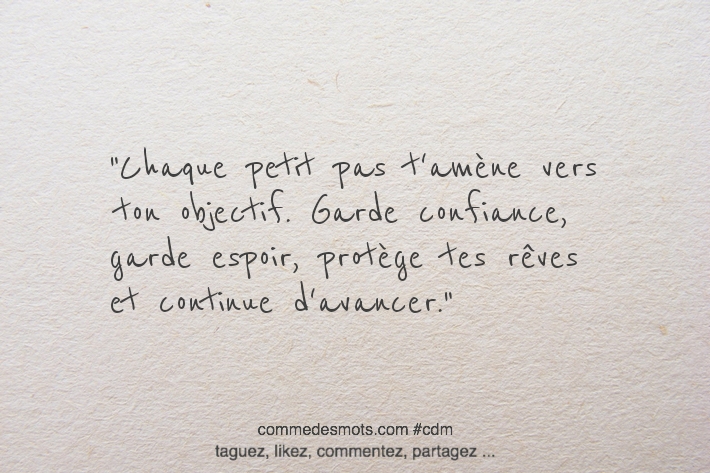 "Chaque petit pas t'amène vers
ton objectif. Garde confiance,
garde espoir, protège tes rêves
et continue d'avancer."
commedesmots.com #cdm
taguez, likez, commentez, partagez ...